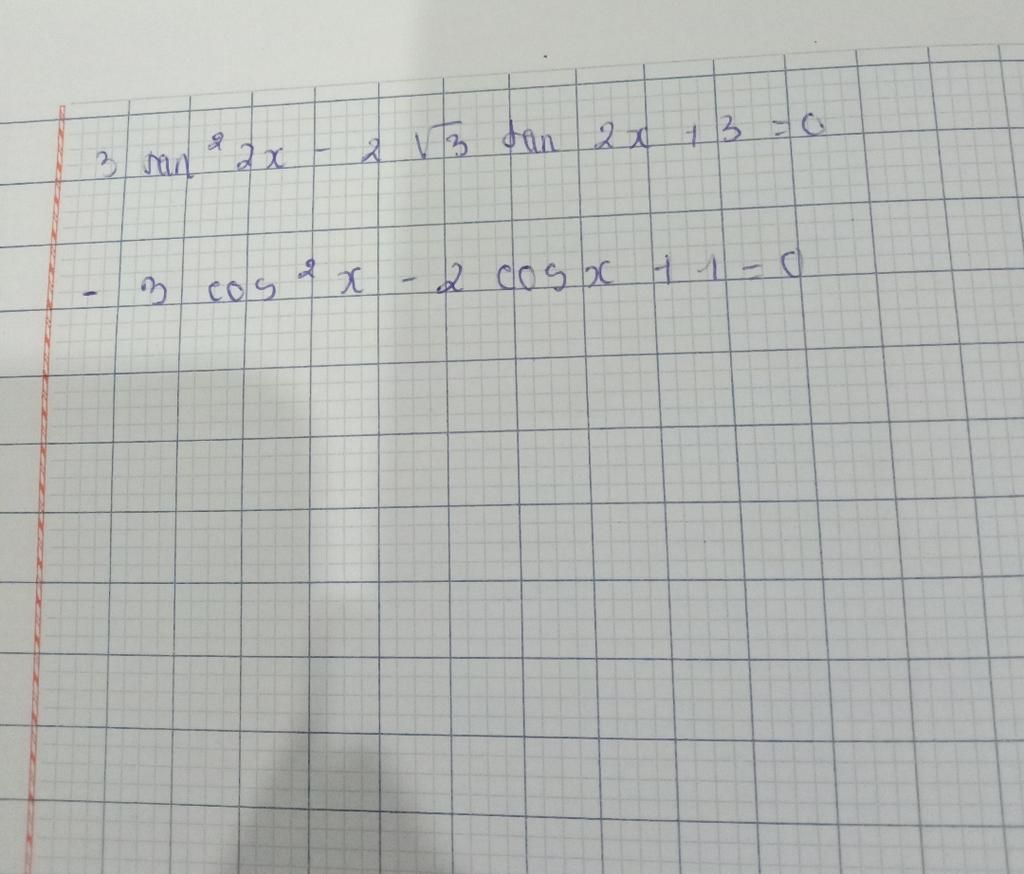 3 tan² 2x - 2 √3 tan 2x + 3 = 0
- 3 cos² x - 2 cos x + 1 = 0